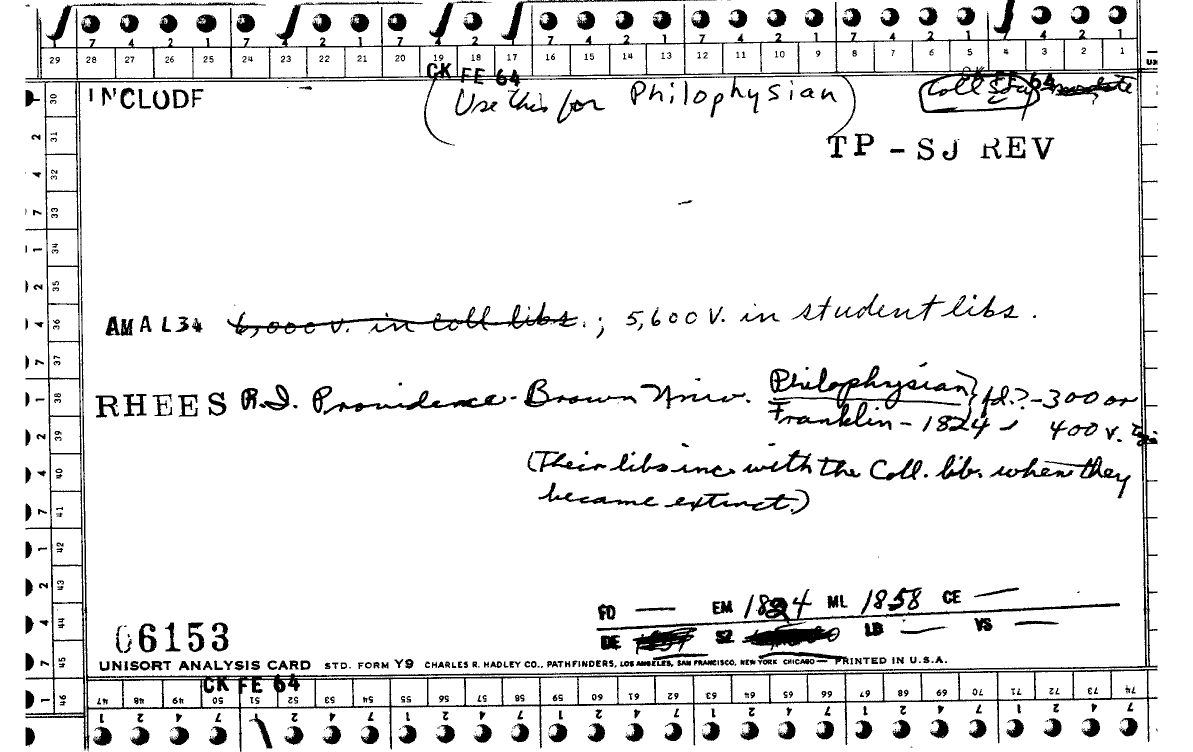 7 4 2 1 7 4 2 1 7 4 2 1 7 4 2 1 7 4 2 1 7 4 2 1 7 4 2 1
29 28 27 26 25 24 23 22 21 20 19 18 17 16 15 14 13 12 11 10 9 8 7 6 5 4 3 2 1
CK FE 64
CK FE 64
INCLUDE
(Use this for Philophysian)
Coll
TP - SJ REV
AMAL34 6,000 v. in coll libs.; 5,600 V. in student libs.
RHEES R.I. Providence - Brown Univ. Philophysian } fd.? - 300 or
Franklin - 1824 400 v.
(Their libs inc. with the Coll. lib. when they
became extinct.)
FD — EM 1824 ML 1858 CE —
DE SZ LB — VS —
06153
UNISORT ANALYSIS CARD STD. FORM Y9 CHARLES R. HADLEY CO., PATHFINDERS, LOS ANGELES, SAN FRANCISCO, NEW YORK CHICAGO — PRINTED IN U.S.A.
CK FE 64
30 31 32 33 34 35 36 37 38 39 40 41 42 43 44 45 46
47 48 49 50 51 52 53 54 55 55 56 57 58 59 60 61 62 63 64 65 66 67 68 69 70 71 72 73 74